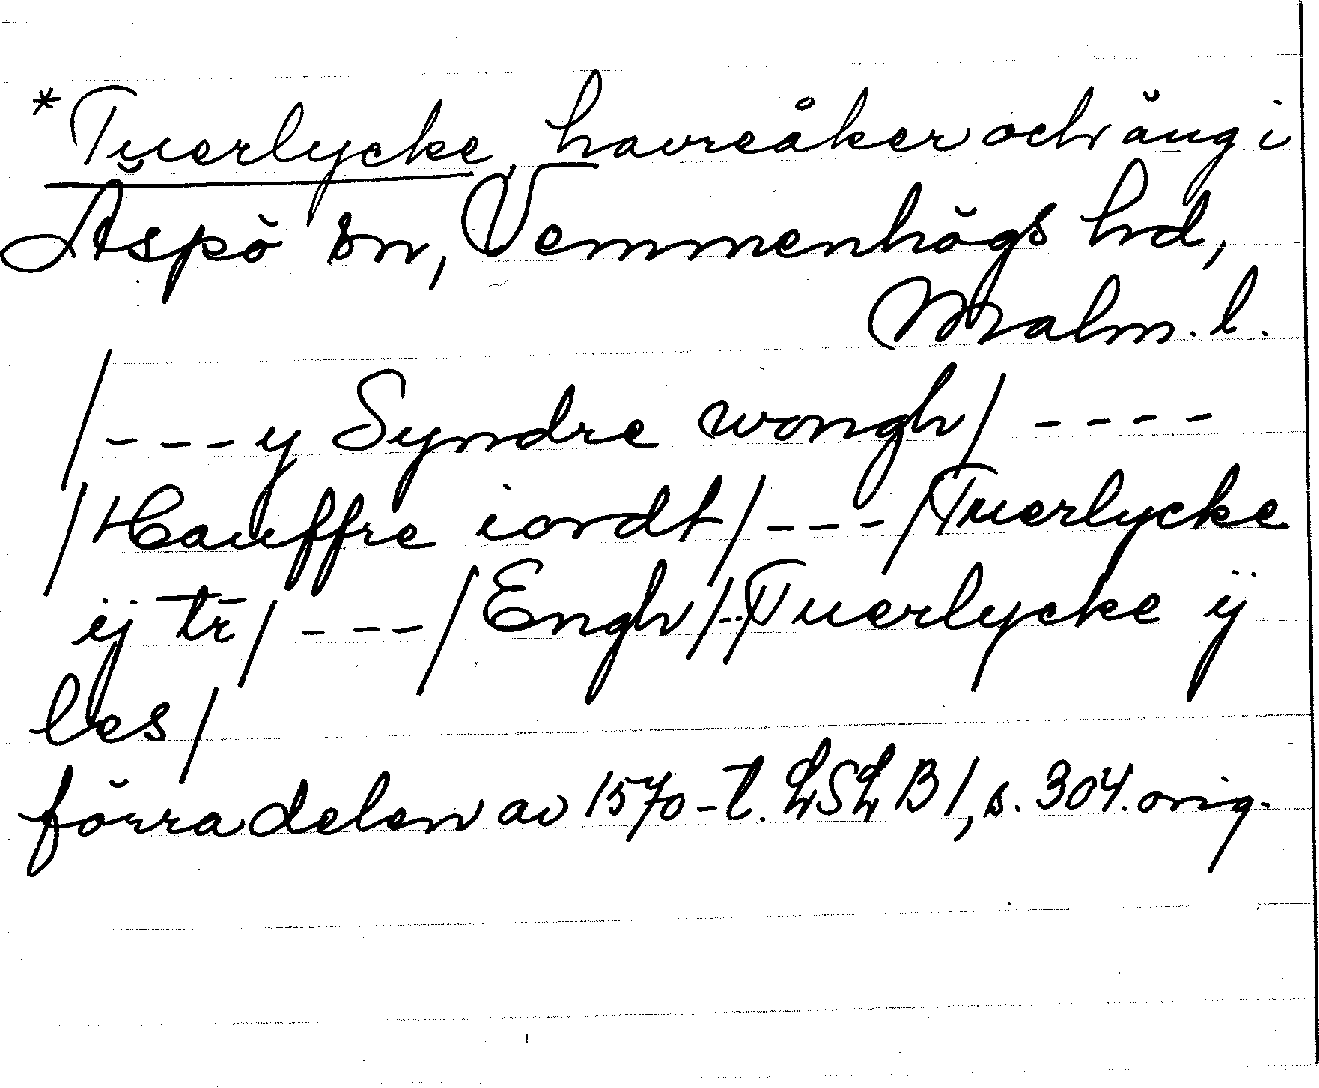 *Tuerlycke, havreåker och äng i
Äspö sn, Vemmenhögs hd,
Malm. l.
/---y Syndre wongh/ ----
/Hauffre iordt/---/Tuerlycke
ij tr̄/---/Engh/../Tuerlycke ij
les/
förra delen av 1570-t. LSLB 1, s. 304. orig.